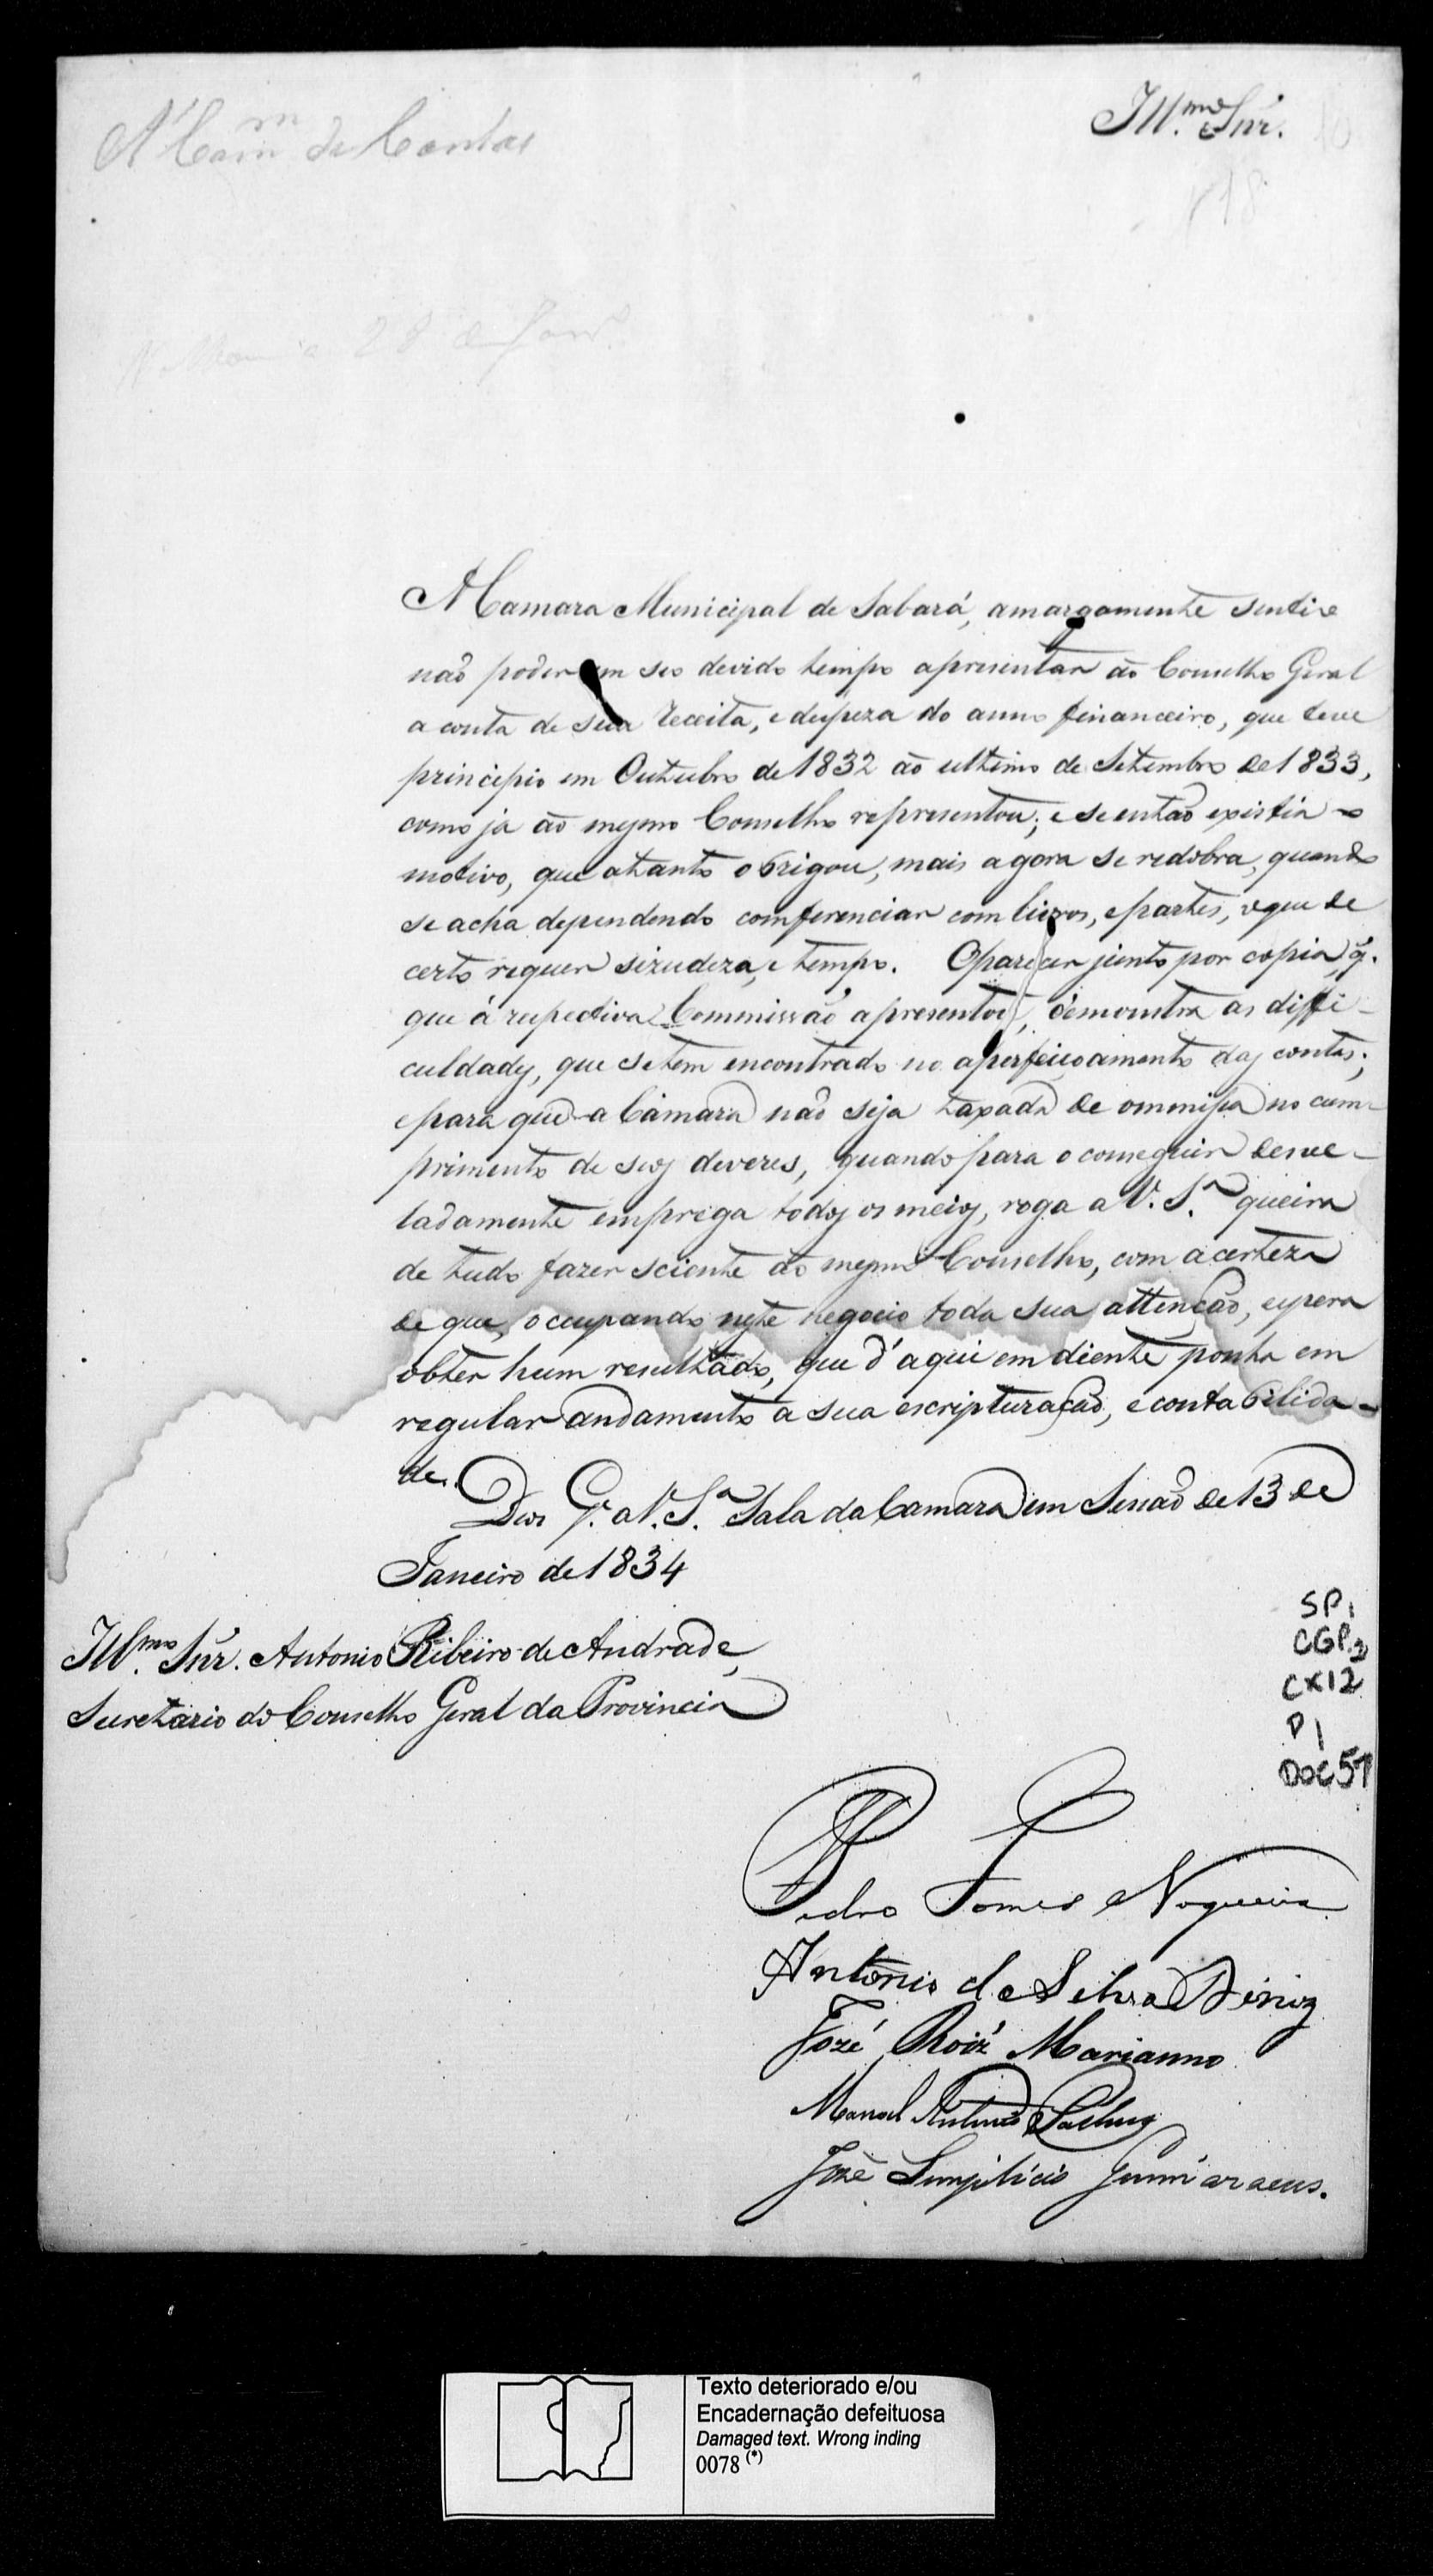 A' Com.m de Contas
Ill.mo Snr.
28 de Janr.o
A Camara Municipal de Sabará, amargamente sentio
não poder em seo devido tempo apresentar áo Conselho Geral
a conta de sua receita, e despeza do anno financeiro, que teve
principio em Outubro de 1832 ao ultimo de Setembro de 1833,
como ja áo mesmo Conselho representou; e se então existia o
motivo, que a tanto obrigou, mais agora se redobra, quando
se acha dependendo comferenciar com livros, e partes, o que de
certo requer sizudeza, e tempo. O parecer junto por copia, q.
que á respectiva Commissão apresentou, demonstra as diffi-
culdades, que se tem encontrado no aperfeiçoamento das contas;
e para que a Câmara não seja taxada de ommissa no cum-
primento de seos deveres, quando para o conseguir desve-
ladamente emprega todos os meios, roga a V. S.a queira
de tudo fazer sciente áo mesmo Conselho, com a certeza
de que, occupando neste negocio toda sua attenção, espera
obter hum resultado, que d'aqui em diente ponha em
regular andamento a sua escripturação, e contabilida-
de.
Deos G.e a V. S.a Sala da Camara em Sessão de 13 de
Janeiro de 1834
Ill.mo Snr. Antonio Ribeiro de Andrade,
Secretario do Conselho Geral da Provincia
SP 1
CGP 2
CX12
P 1
DOC 51
Pedro Gomes Nogueira
Antonio da Silva Diniz
José Roiz' Marianno
Manoel Antonio
José Simplicio Guimaraens.
Texto deteriorado e/ou
Encadernação defeituosa
Damaged text. Wrong inding
0078 (*)